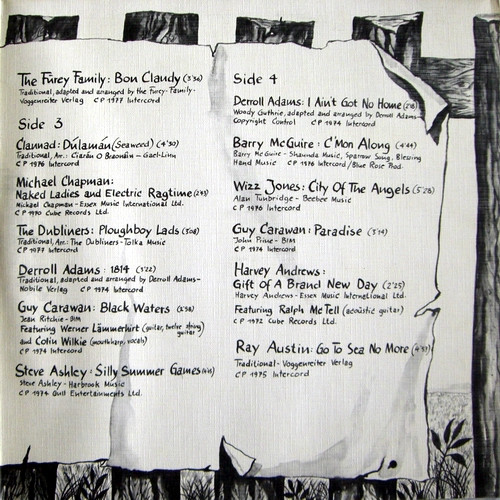 The Furey Family: Bon Claudy (3'36)
Traditional, adapted and arranged by the Furey-Family-
Voggenreiter Verlag CP 1977 Intercord
Side 3
Clannad: Dúlamán (Seaweed) (4'30)
Traditional, Arr.: Ciarán O Braonáin - Gael-Linn
CP 1976 Intercord
Michael Chapman:
Naked Ladies and Electric Ragtime
Michael Chapman - Essex Music International Ltd.
CP 1970 Cube Records Ltd.
The Dubliners: Ploughboy Lads (3'08)
Traditional, Arr: The Dubliners - Tolka Music
CP 1977 Intercord
Derroll Adams: 1814 (3'22)
Traditional, adapted and arranged by Derroll Adams-
Nobile Verlag CP 1974 Intercord
Guy Carawan: Black Waters (3'38)
Jean Ritchie - BIM
Featuring Werner Lämmerhirt (guitar, twelve string guitar)
and Colin Wilkie (mouthharp, vocals)
CP 1974 Intercord
Steve Ashley: Silly Summer Games
Steve Ashley - Harbrook Music
CP 1974 Gull Entertainments Ltd.
Side 4
Derroll Adams: I Ain't Got No Home (2'18)
Woody Guthrie, adapted and arranged by Derroll Adams-
Copyright Control CP 1974 Intercord
Barry McGuire: C'Mon Along (4'44)
Barry McGuire - Shaunda Music, Sparrow Song, Blessing
Hand Music CP 1976 Intercord/Blue Rose Prod.
Wizz Jones: City Of The Angels (5'28)
Alan Tunbridge - Beebee Music
CP 1976 Intercord
Guy Carawan: Paradise (3'19)
John Prine - BIM
CP 1974 Intercord
Harvey Andrews:
Gift Of A Brand New Day (2'25)
Harvey Andrews - Essex Music International Ltd.
Featuring Ralph McTell (acoustic guitar)
CP 1972 Cube Records Ltd.
Ray Austin: Go To Sea No More
Traditional - Voggenreiter Verlag
CP 1975 Intercord